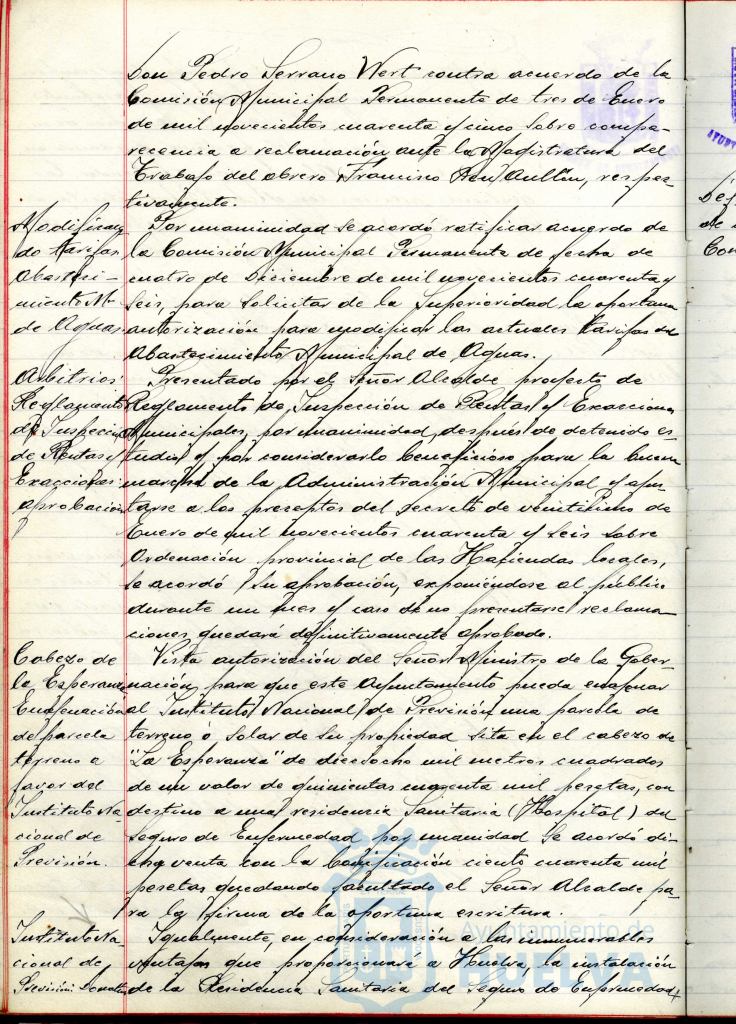 Don Pedro Serrano Wert contra acuerdo de la
Comisión Municipal Permanente de tres de Enero
de mil novecientos cuarenta y cinco sobre compa-
recencia a reclamación ante la Magistratura del
Trabajo del obrero Francisco Aullón, respec-
tivamente.
Modifican-
do tarifas
Abasteci-
miento M.
de Aguas
Por unanimidad se acordó ratificar acuerdo de
la Comisión Municipal Permanente de fecha de
cuatro de Diciembre de mil novecientos cuarenta y
seis, para solicitar de la Superioridad la oportuna
autorización para modificar las actuales tarifas del
Abastecimiento Municipal de Aguas.
Arbitrios:
Reglamento
de Inspección
de Rentas y
Exacciones:
aprobación
Presentado por el Señor Alcalde proyecto de
Reglamento de Inspección de Rentas y Exacciones
Municipales, por unanimidad, después de detenido es-
tudio y por considerarlo beneficioso para la buena
marcha de la Administración Municipal y ajus-
tarse a los preceptos del Decreto de veinticinco de
Enero de mil novecientos cuarenta y seis sobre
Ordenación provincial de las Haciendas locales,
se acordó su aprobación, exponiéndose al público
durante un mes y caso de no presentarse reclama-
ciones quedará definitivamente aprobado.
Cabezo de
la Esperanza
Enagenación
de parcela
terreno a
favor del
Instituto Na-
cional de
Previsión.
Vista autorización del Señor Ministro de la Gober-
nación, para que este Ayuntamiento pueda enagenar
al Instituto Nacional de Previsión una parcela de
terreno o solar de su propiedad sita en el cabezo de
"La Esperanza" de dieciocho mil metros cuadrados
de un valor de quinientas cuarenta mil pesetas, con
destino a una residencia Sanitaria (Hospital) del
Seguro de Enfermedad por unanidad se acordó di-
cha venta con la bonificación ciento cuarenta mil
pesetas quedando facultado el Señor Alcalde pa-
ra la firma de la oportuna escritura.
Instituto Na-
cional de
Previsión:
Igualmente, en consideración a las innumerables
ventajas que proporcionará a Huelva, la instalación
de la Residencia Sanitaria del Seguro de Enfermedad,
Ayuntamiento de
HUELVA